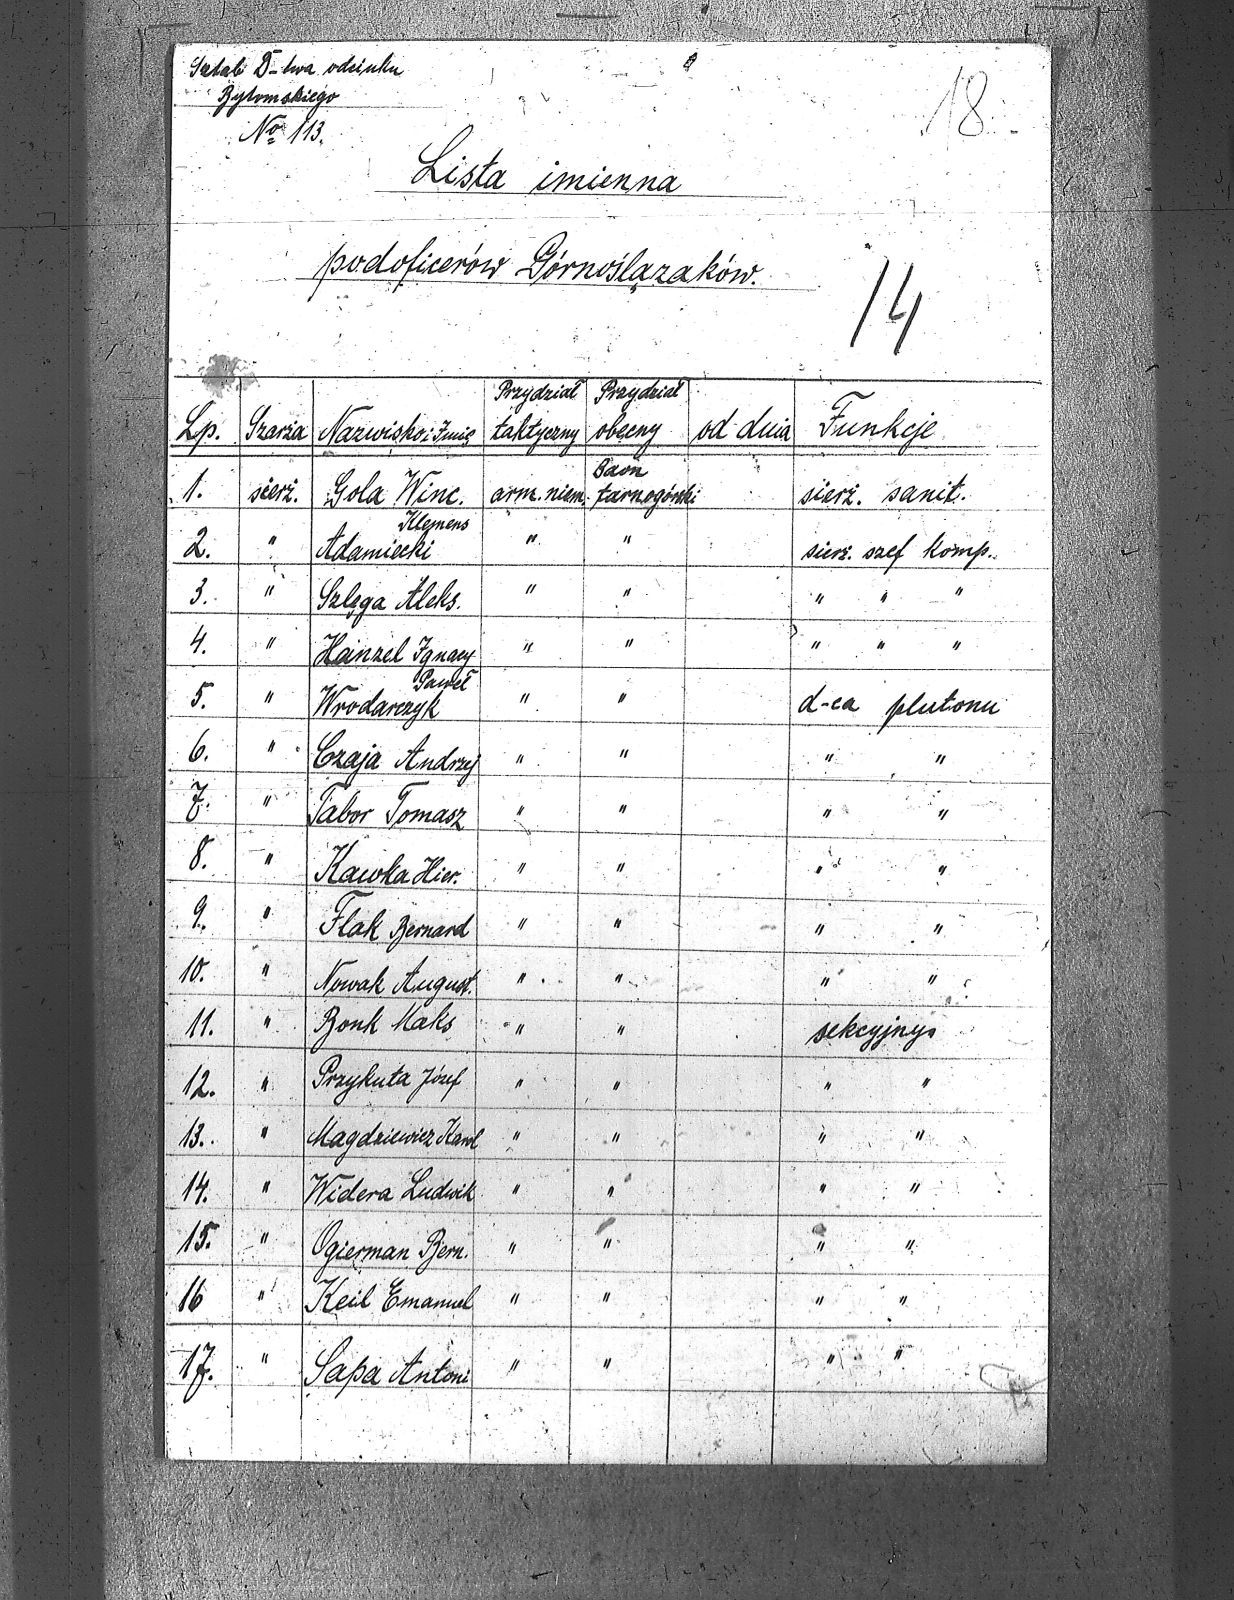 Sztab D-twa odcinku
Bytomskiego
№ 113.
18
Lista imienna
podoficerów Górnoślązaków.
14
Lp. Szarża Nazwisko i Imię Przydział taktyczny Przydział obecny od dnia Funkcje
1. sierż. Gola Winc. arm. niem. Baon tarnogórski sierż. sanit.
2. " Adamiecki Klemens " " sierż. szef komp.
3. " Szlęga Aleks. " " " " "
4. " Hainzel Ignacy " " " " "
5. " Wrodarczyk Paweł " " d-ca plutonu
6. " Czaja Andrzej " " " "
7. " Tabor Tomasz " " " "
8. " Kawka Hier. " " " "
9. " Flak Bernard " " " "
10. " Nowak August. " " " "
11. " Bonk Maks " " sekcyjny
12. " Przykuta Józef " " " "
13. " Magdziewicz Karol " " " "
14. " Widera Ludwik " " " "
15. " Ogierman Bern. " " " "
16 " Keil Emanuel " " " "
17. " Sapa Antoni " " " "